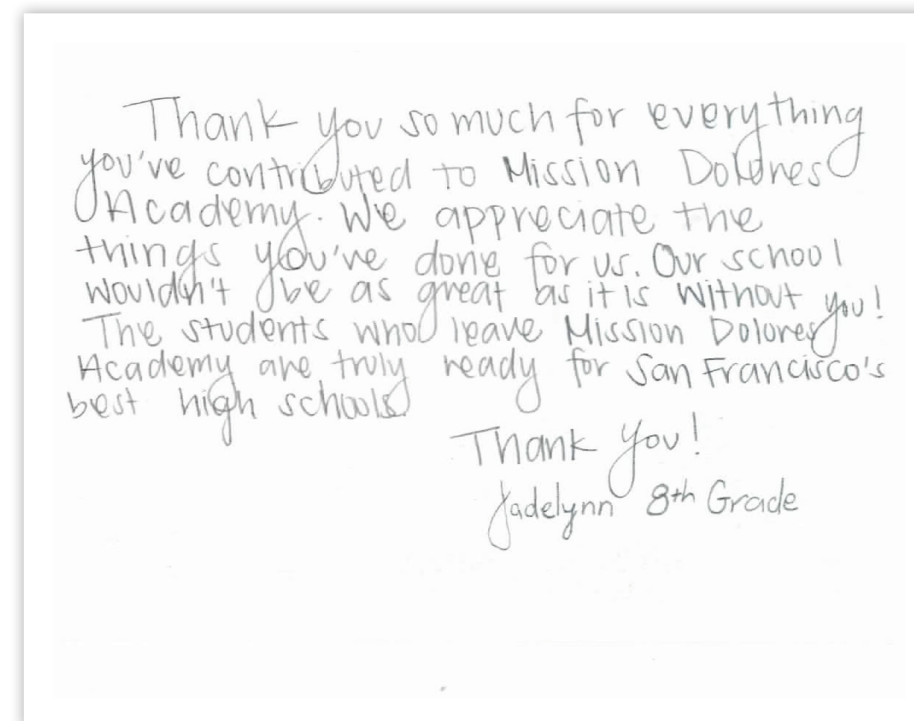 Thank you so much for everything
you've contributed to Mission Dolores
Academy. We appreciate the
things you've done for us. Our school
wouldn't be as great as it is without you!
The students who leave Mission Dolores
Academy are truly ready for San Francisco's
best high schools
Thank you!
Jadelynn 8th Grade